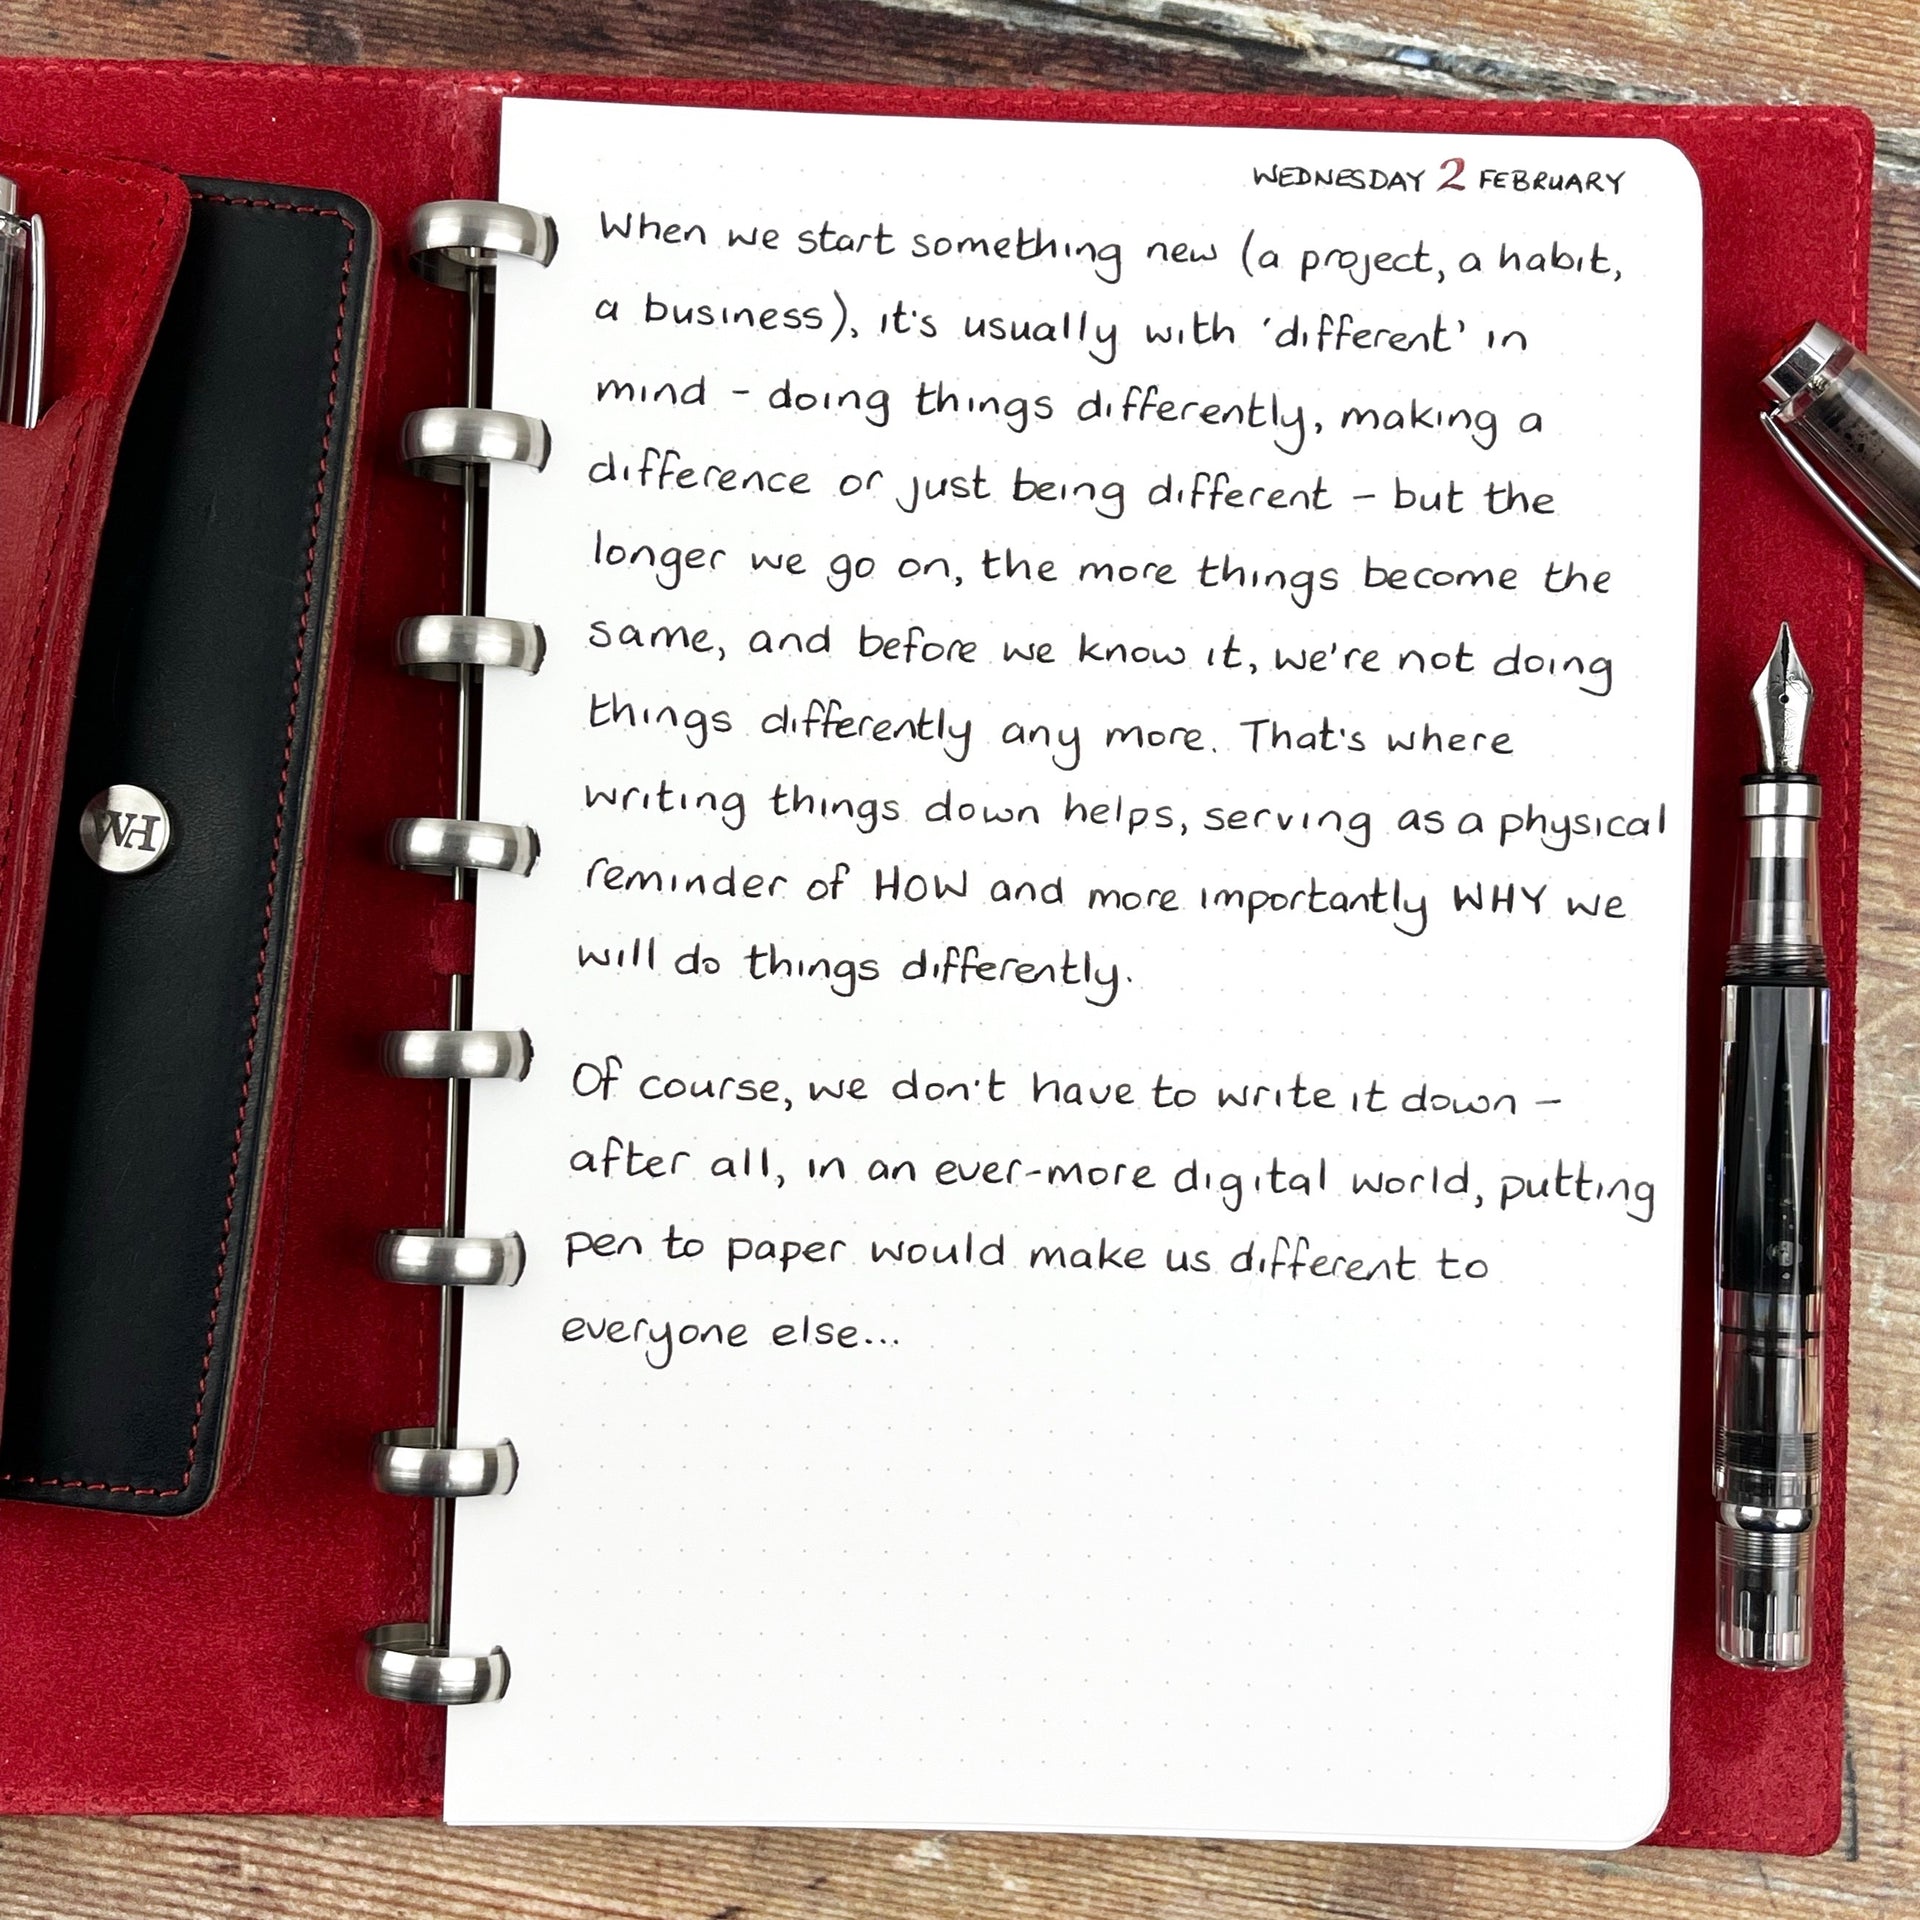 WEDNESDAY 2 FEBRUARY
When we start something new (a project, a habit,
a business), it's usually with 'different' in
mind - doing things differently, making a
difference or just being different - but the
longer we go on, the more things become the
same, and before we know it, we're not doing
things differently any more. That's where
writing things down helps, serving as a physical
reminder of HOW and more importantly WHY we
will do things differently.
Of course, we don't have to write it down -
after all, in an ever-more digital world, putting
pen to paper would make us different to
everyone else...
WH